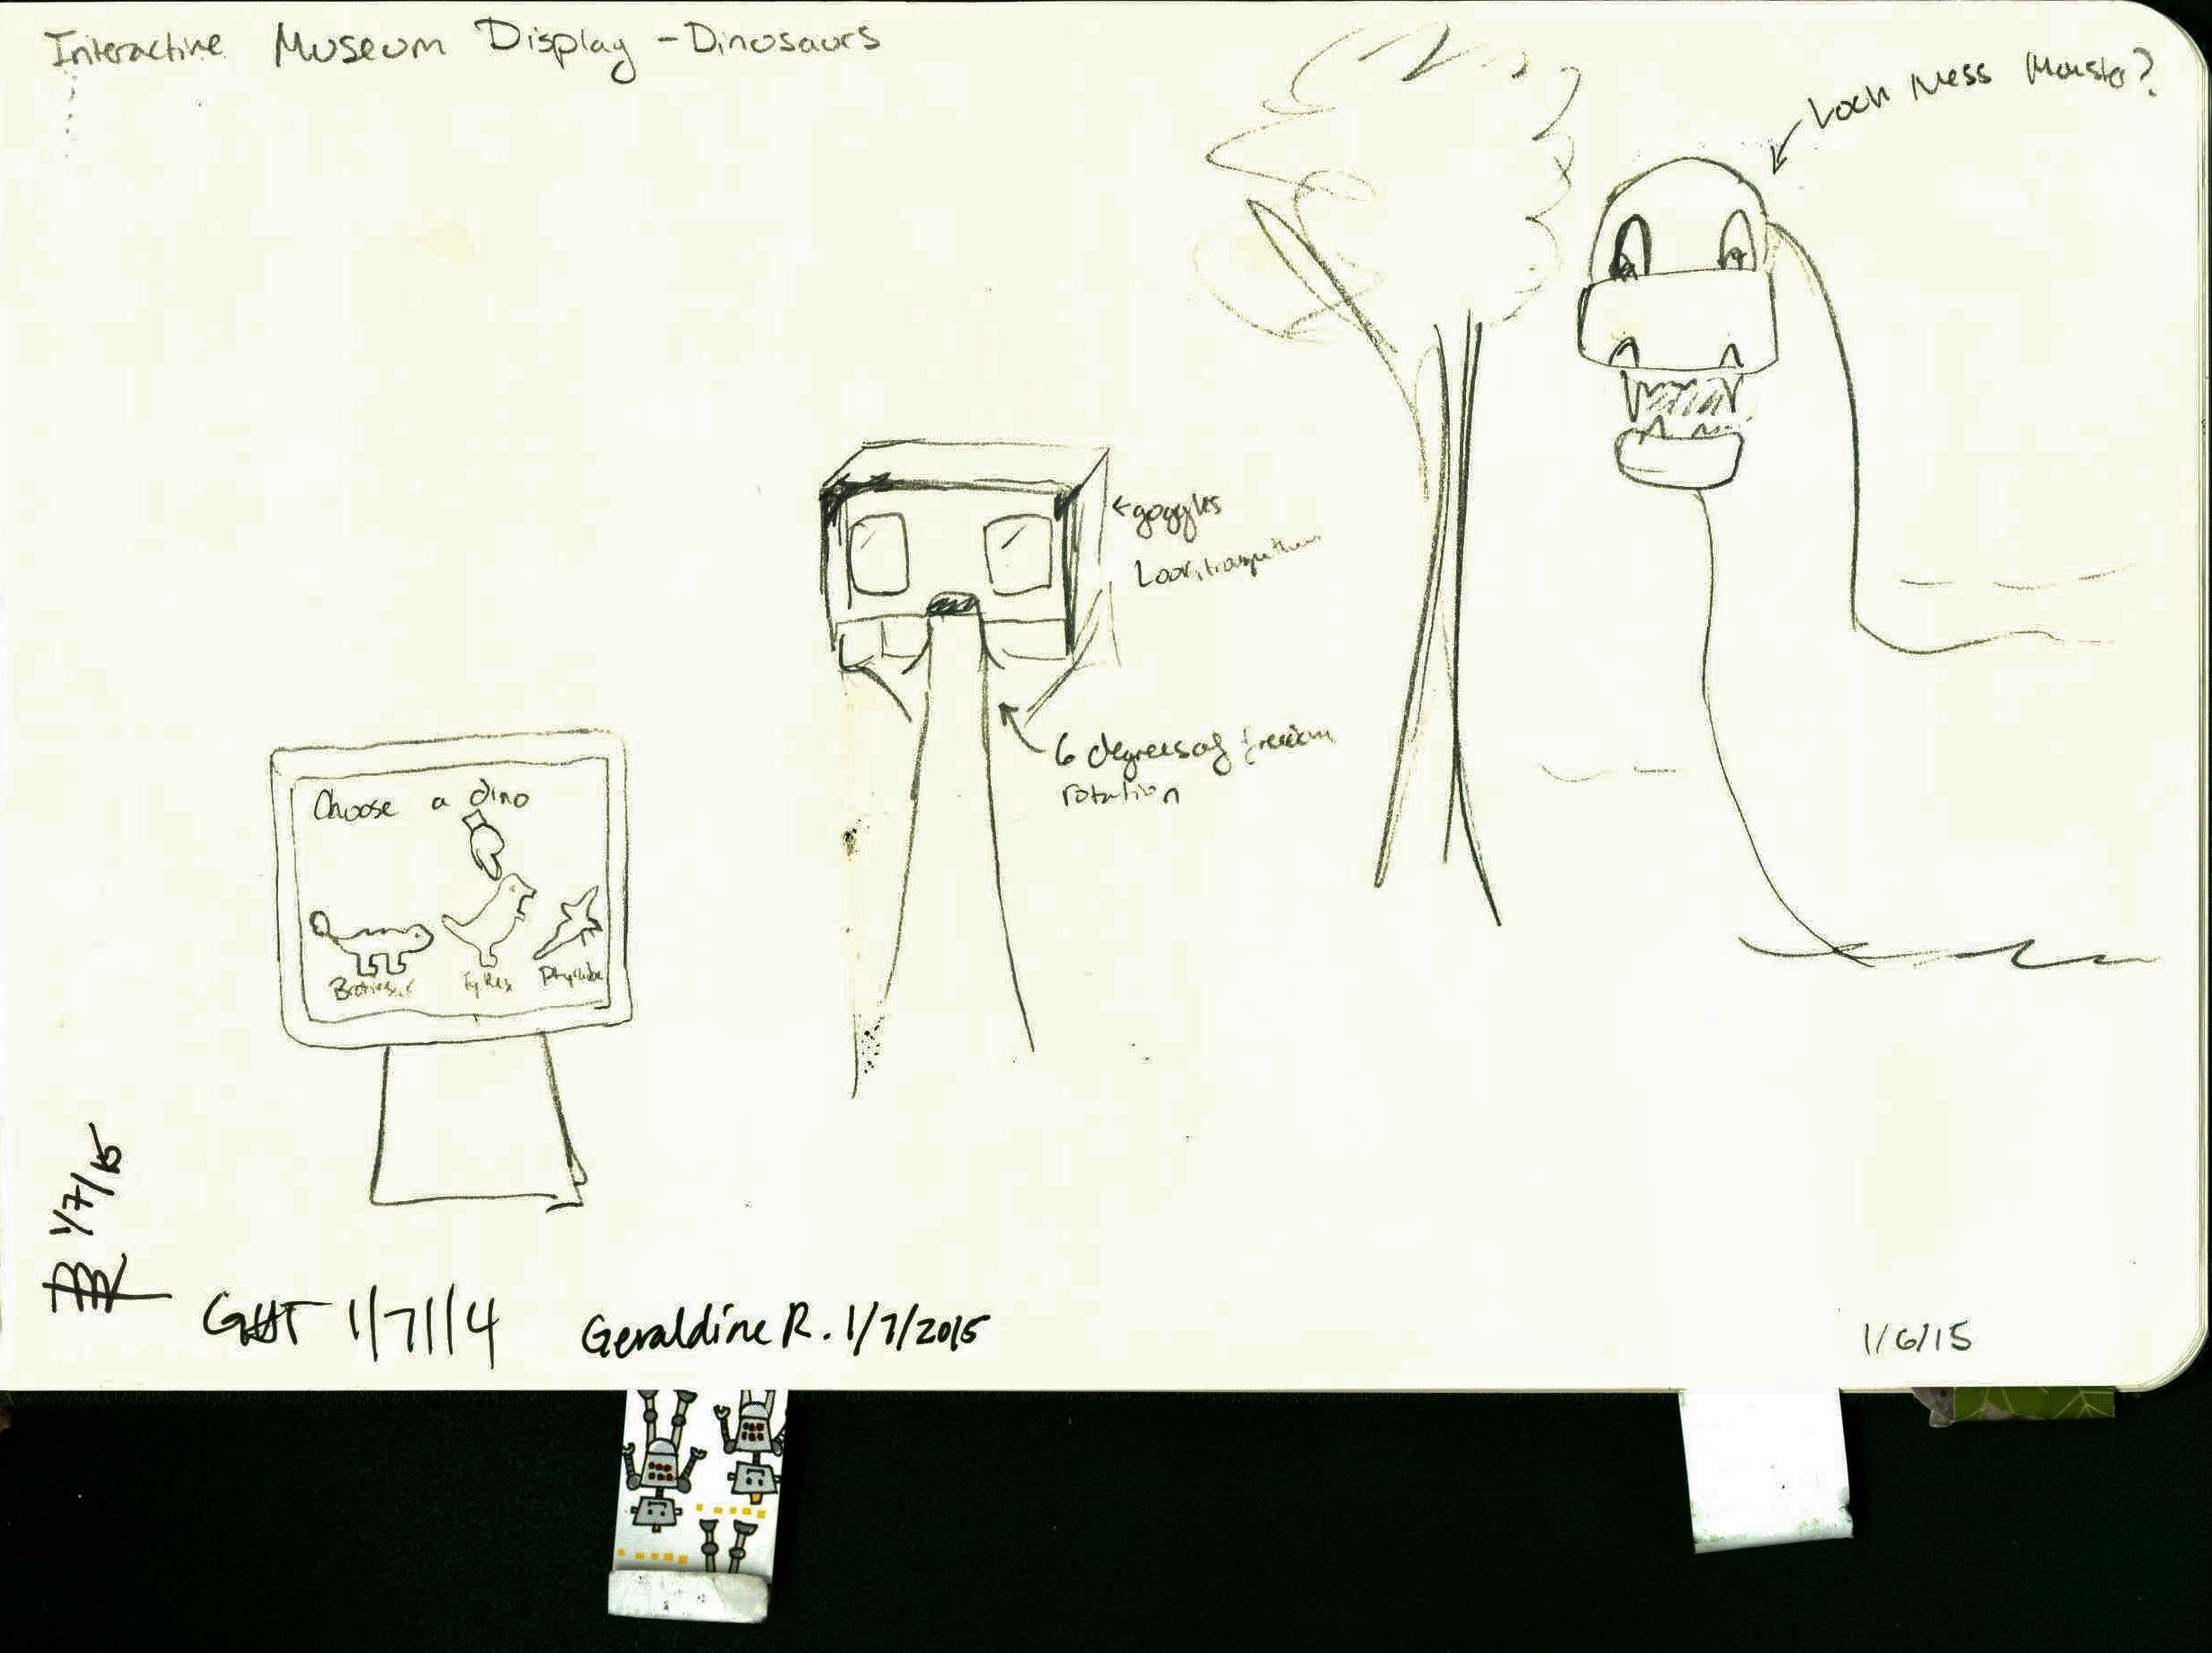 Interactive Museum Display - Dinosaurs
Loch Ness Monster?
← goggles
Look through
6 degrees of freedom
rotation
Choose a dino
Ty Rex
1/7/15
GHT 1/7/14
Geraldine R. 1/7/2015
1/6/15